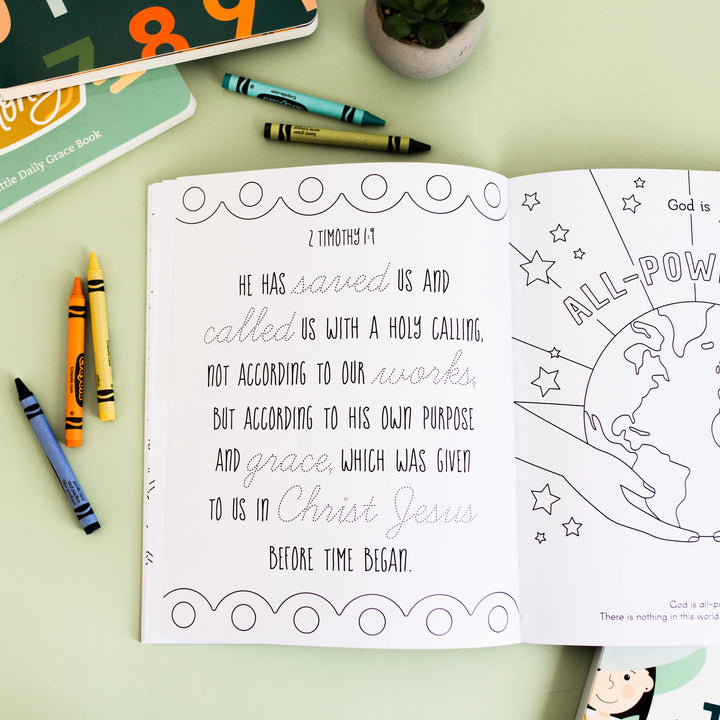 8 9
7
ttle Daily Grace Book
Crayola.com
2 TIMOTHY 1:9
HE HAS saved US AND
called US WITH A HOLY CALLING,
NOT ACCORDING TO OUR works,
BUT ACCORDING TO HIS OWN PURPOSE
AND grace, WHICH WAS GIVEN
TO US IN Christ Jesus
BEFORE TIME BEGAN.
God is
ALL-POW
God is all-p
There is nothing in this world